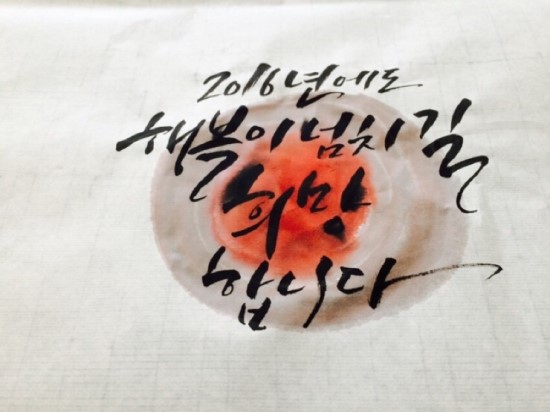 2016년에도
행복이 넘치길
희망
합니다